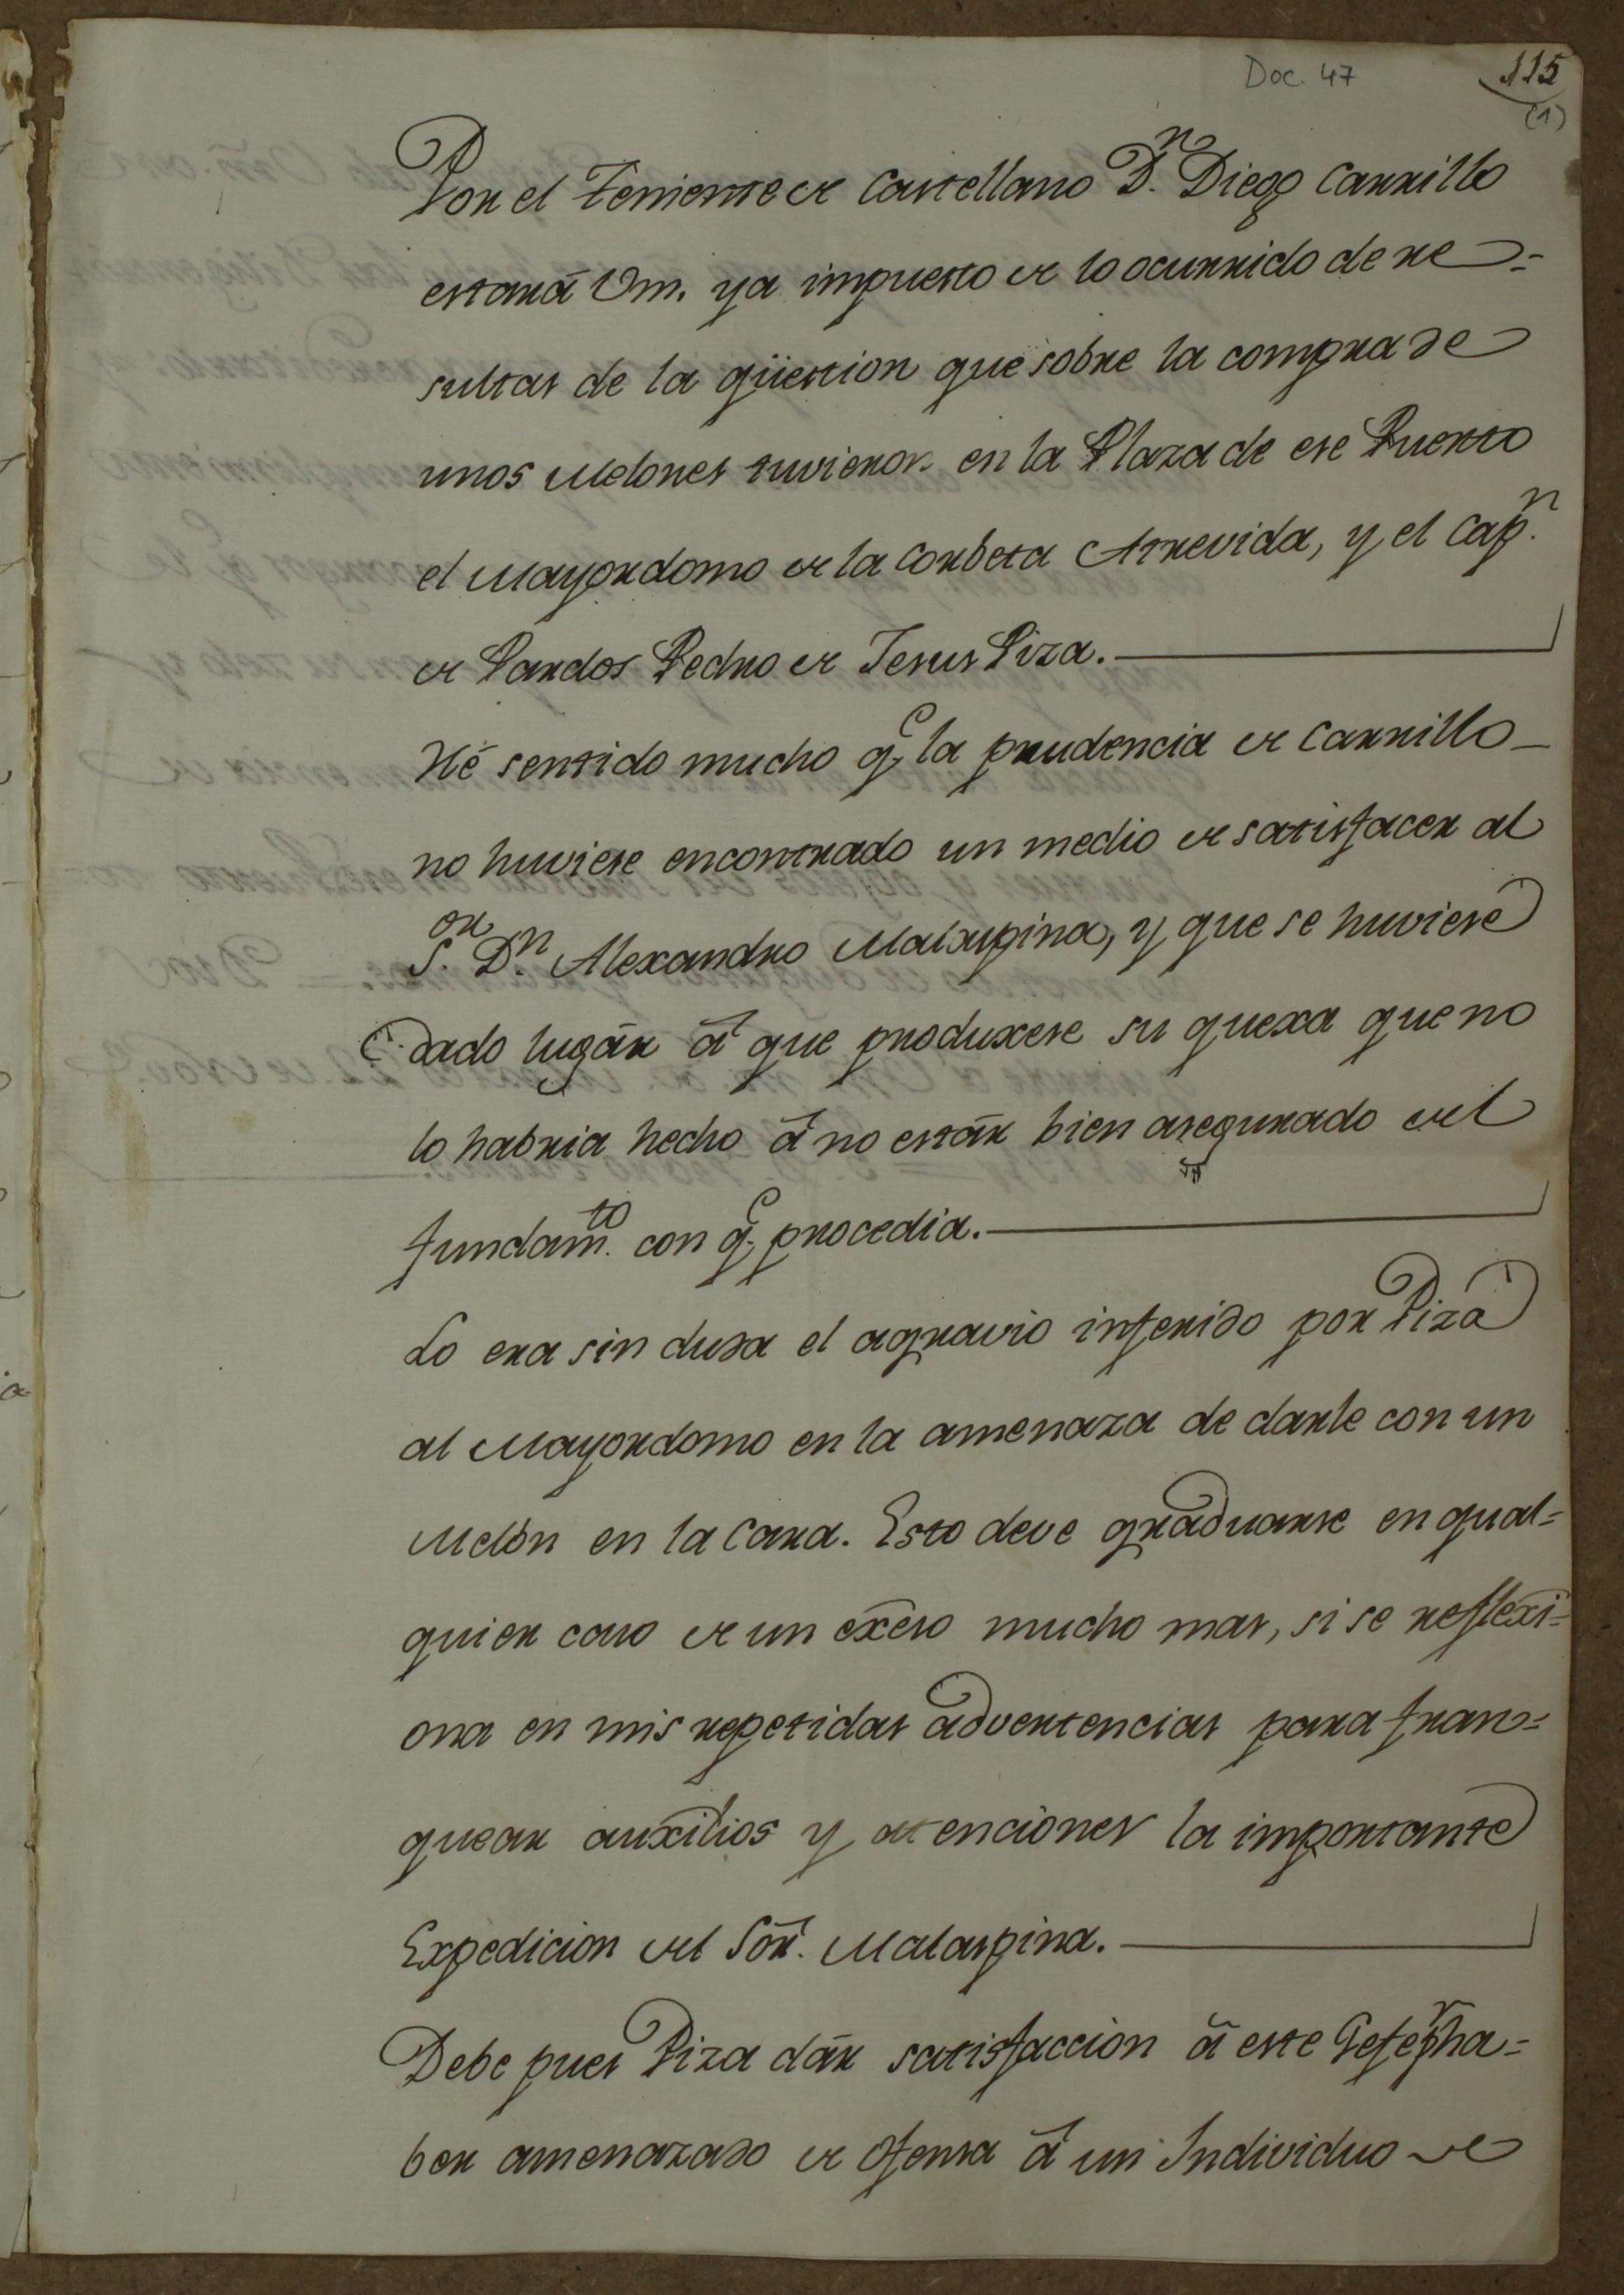 Doc. 47
115
(1)
Por el Teniente de Castellano D.n Diego Carrillo
estará Vm. ya impuesto de lo ocurrido de re=
sultas de la qüestion que sobre la compra de
unos Melones tuvieron en la Plaza de ese Puerto
el Mayordomo de la Corbeta Atrevida, y el Cap.n
de Pardos Pedro de Jesus Piza.
Hé sentido mucho q.e la prudencia de Carrillo
no huviese encontrado un medio de satisfacer al
S.or D.n Alexandro Malaspina, y que se huviese
dado lugár á que produxese su quexa que no
lo habria hecho á no estár bien asegurado del
fundam.to con q.e procedia.
Lo era sin duda el agravio inferido por Piza
al Mayordomo en la amenaza de darle con un
Melón en la Cara. Esto deve graduarse en qual=
quier caso de un exceso mucho mas, si se reflexi=
ona en mis repetidas advertencias para fran=
quear auxilios y atenciones la importante
Expedicion del Sór. Malaspina.
Debe pues Piza dár satisfaccion á este Gefe p.r ha=
ber amenazado de ofensa á un Individuo de